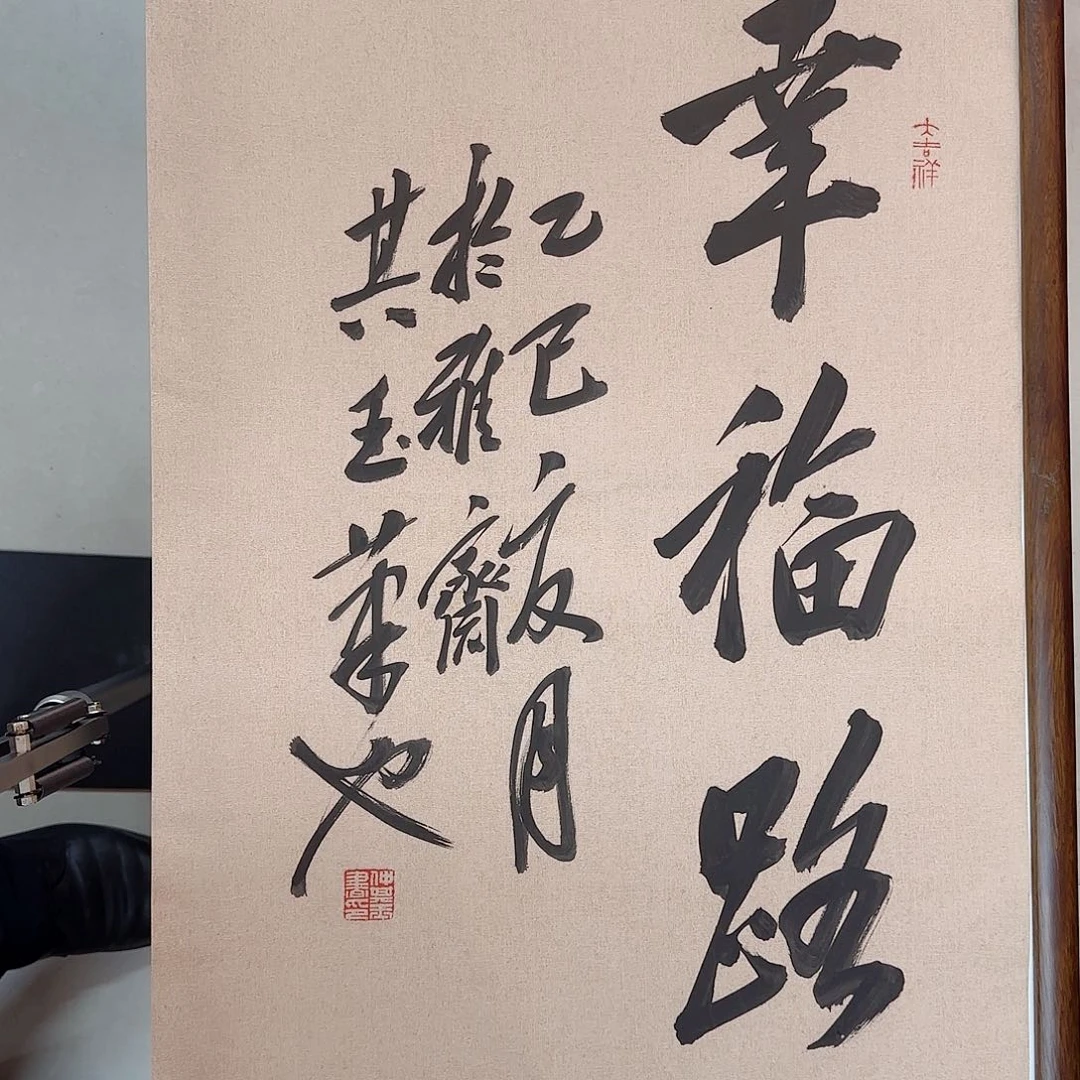 大吉祥
幸福路
乙巳夏月
於雅齋
其玉華也